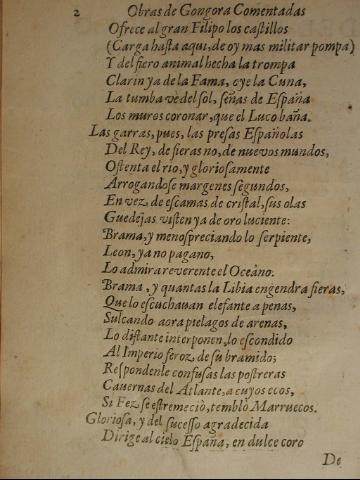 2 Obras de Gongora Comentadas
Ofrece al gran Filipo los castillos
(Carga hasta aqui, de oy mas militar pompa)
Y del fiero animal hecha la trompa
Clarin ya de la Fama, oye la Cuna,
La tumba ve del sol, señas de España
Los muros coronar, que el Luco baña.
Las garras, pues, las presas Españolas
Del Rey, de fieras no, de nuevos mundos,
Ostenta el rio, y gloriosamente
Arrogandose margenes segundos,
En vez de escamas de cristal, sus olas
Guedejas visten ya de oro luciente:
Brama, y menospreciando lo serpiente,
Leon, ya no pagano,
Lo admira reverente el Oceáno.
Brama, y quantas la Libia engendra fieras,
Que lo escuchauan elefante apenas,
Sulcando aora pielagos de arenas,
Lo distante interponen, lo escondido
Al Imperio feroz de su bramido;
Respondenle confusas las postreras
Cauernas del Atlante, a cuyos ecos,
Si Fez se estremeciò, temblò Marruecos.
Gloriosa, y del sucesso agradecida
Dirige al cielo España, en dulce coro
De